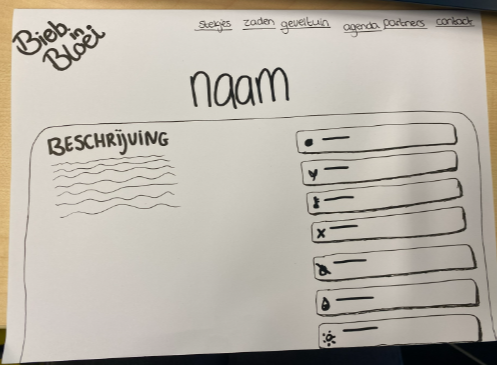 Bieb
in
Bloei
stekjes zaden geveltuin agenda partners contact
naam
BESCHRIJVING